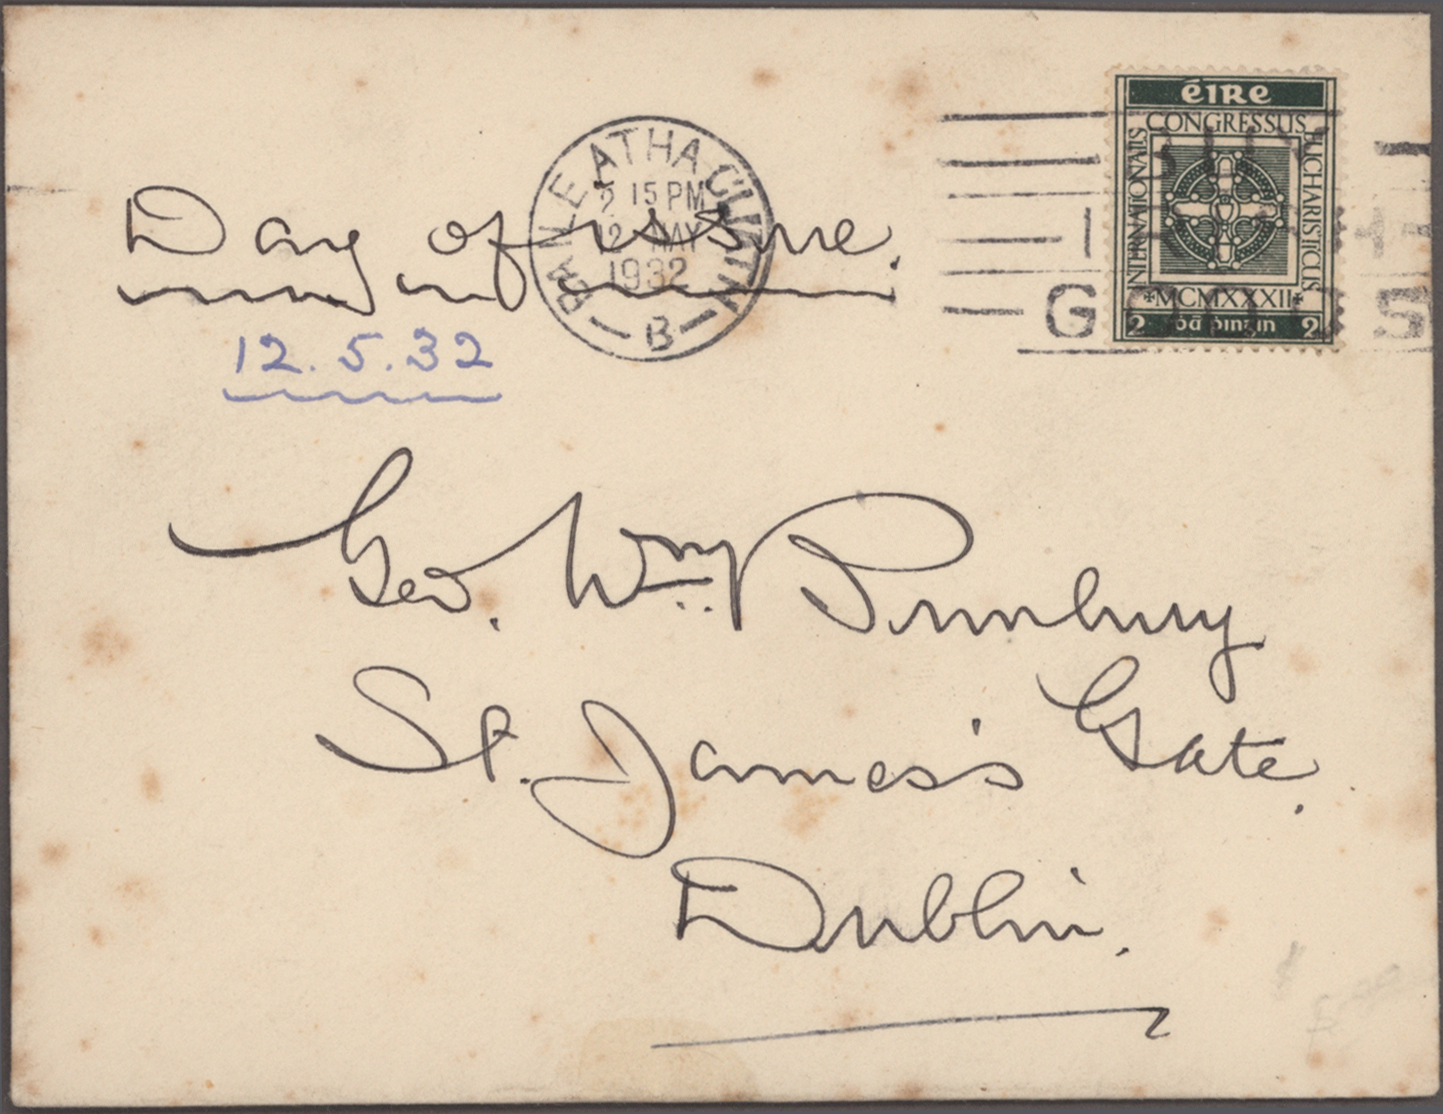 ÉIRE
CONGRESSUS
INTERNATIONALIS
EUCHARISTICUS
MCMXXXII
2 2
BAILE ATHA CLIATH
2 15 PM
12 MAY
1932
B
BUY
IRISH
GOODS
Day of issue.
12.5.32
Geo. Wm Bunbury
St. James's Gate.
Dublin.